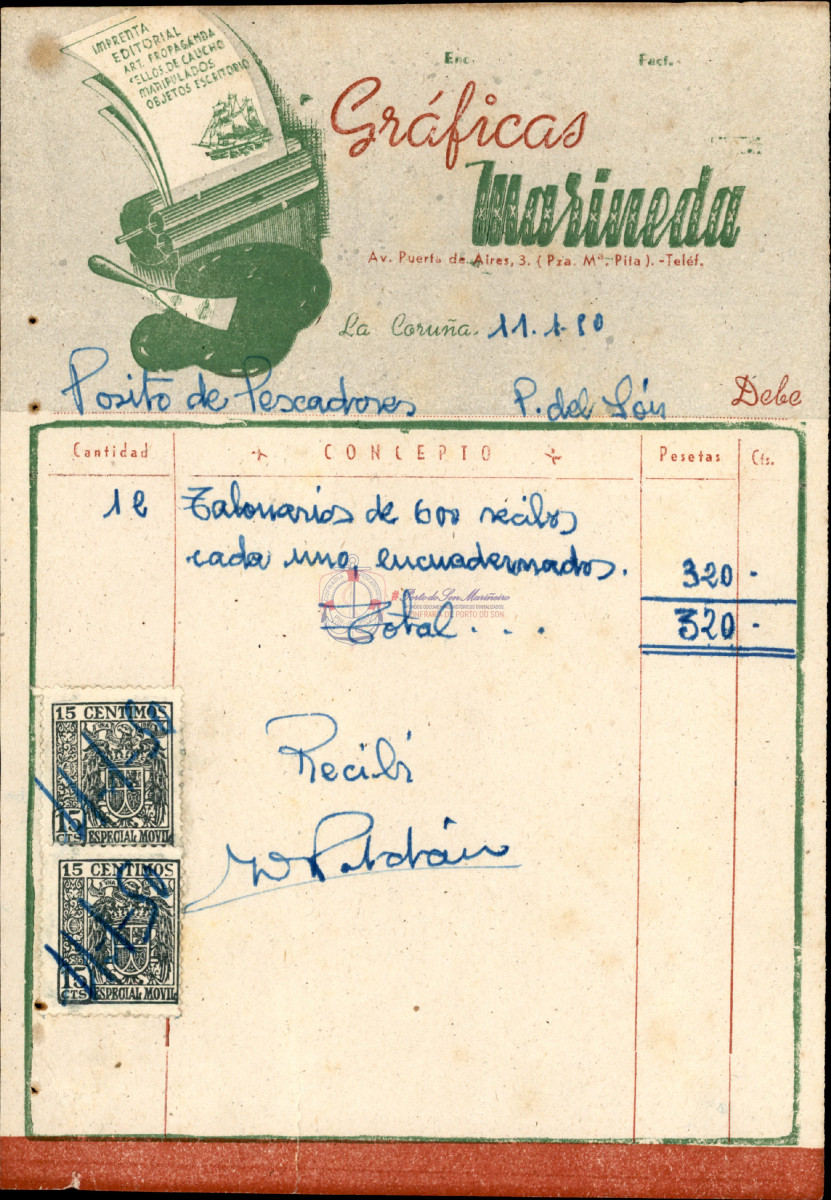 IMPRENTA
EDITORIAL
ART. PROPAGANDA
SELLOS DE CAUCHO
MANIPULADOS
OBJETOS ESCRITORIO
Enc. Fact.
Gráficas
Marineda
Av. Puerta de Aires, 3. (Pza. Mª. Pita). -Teléf.
La Coruña. 11.1.50
Posito de Pescadores P. del Són Debe
Cantidad CONCEPTO Pesetas Cts.
12 Talonarios de 600 recibos
cada uno, encuadernados. 320 -
#Porto do Son Mariñeiro
CONFRARÍA DE PORTO DO SON
Total . . . 320 -
15 CENTIMOS
11-1-50
15
CTS ESPECIAL MOVIL
Recibí
15 CENTIMOS
11-1-50
15
CTS ESPECIAL MOVIL